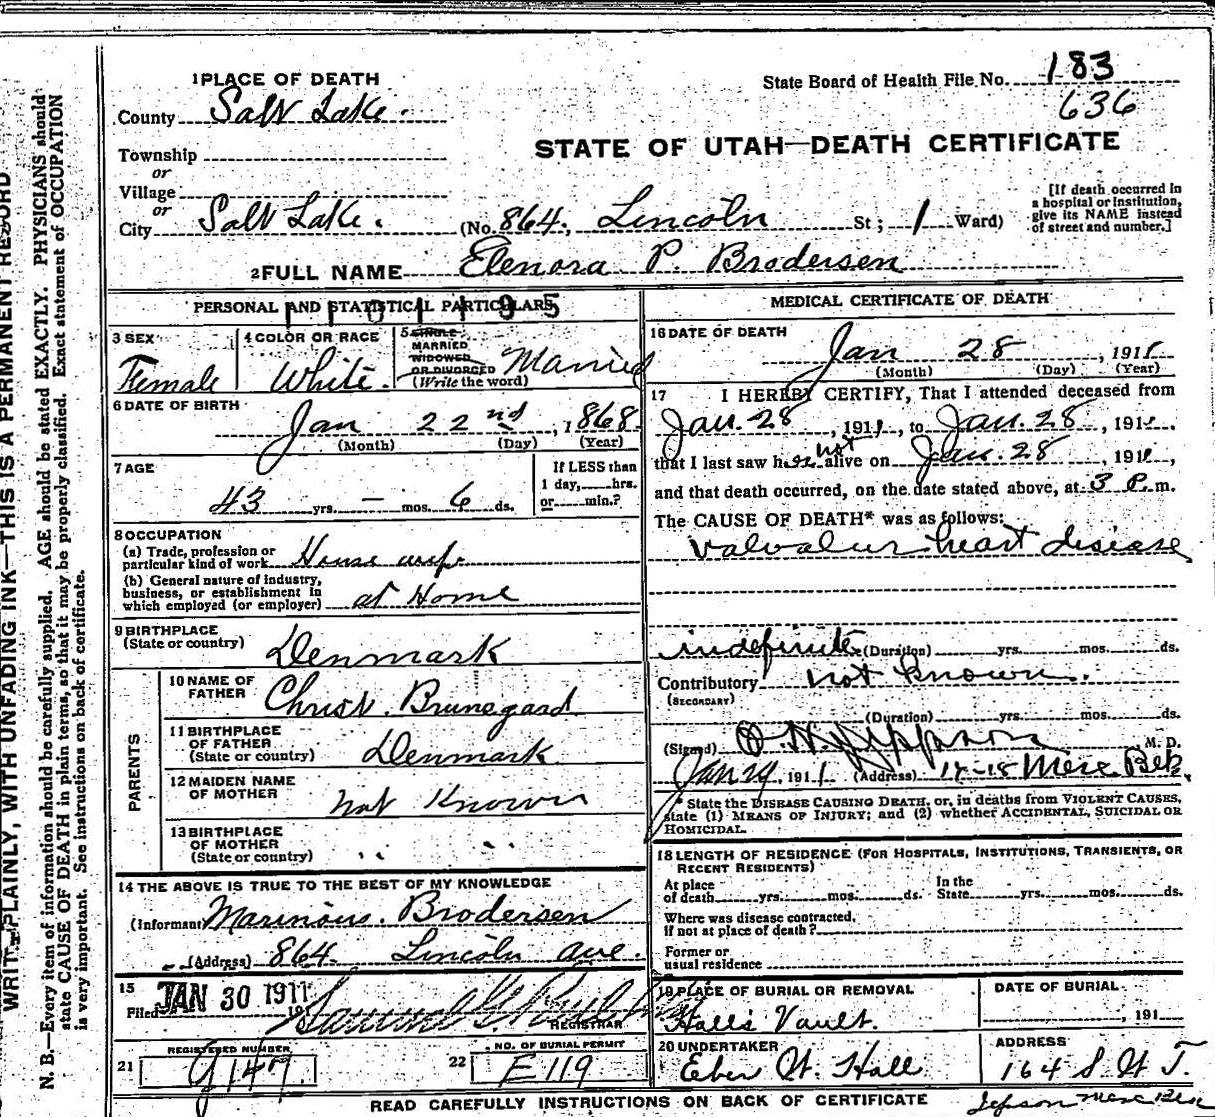 1 PLACE OF DEATH
State Board of Health File No. 183
636
County Salt Lake.
STATE OF UTAH—DEATH CERTIFICATE
Township
or
Village
or
City Salt Lake. (No. 864, Lincoln St; 1 Ward)
[If death occurred in a hospital or institution, give its NAME instead of street and number.]
2 FULL NAME Elenora P. Brodersen
PERSONAL AND STATISTICAL PARTICULARS
3 SEX Female
4 COLOR OR RACE White.
5 SINGLE MARRIED WIDOWED OR DIVORCED (Write the word) Married
6 DATE OF BIRTH
Jan 22nd, 1868
(Month) (Day) (Year)
7 AGE
43 yrs. — mos. 6 ds.
If LESS than 1 day, hrs. or min.?
8 OCCUPATION
(a) Trade, profession or particular kind of work House wife
(b) General nature of industry, business, or establishment in which employed (or employer) at Home
9 BIRTHPLACE
(State or country) Denmark
PARENTS
10 NAME OF FATHER Christ. Brunegaard
11 BIRTHPLACE OF FATHER (State or country) Denmark
12 MAIDEN NAME OF MOTHER not Known
13 BIRTHPLACE OF MOTHER (State or country) " "
14 THE ABOVE IS TRUE TO THE BEST OF MY KNOWLEDGE
(Informant Marinous. Brodersen
(Address) 864 Lincoln ave.
15
Filed JAN 30 1911 191
REGISTRAR
21 REGISTERED NUMBER
22 NO. OF BURIAL PERMIT E 119
MEDICAL CERTIFICATE OF DEATH
16 DATE OF DEATH
Jan 28, 1911
(Month) (Day) (Year)
17 I HEREBY CERTIFY, That I attended deceased from
Jan. 28, 1911, to Jan. 28, 1911,
that I last saw her not alive on Jan. 28, 1911,
and that death occurred, on the date stated above, at 3 P. m.
The CAUSE OF DEATH* was as follows:
Valvalur heart disease
indefinite (Duration) yrs. mos. ds.
Contributory not Known.
(SECONDARY)
(Duration) yrs. mos. ds.
(Signed) M. D.
1911 (Address) 17-18 Merc Blk.
* State the DISEASE CAUSING DEATH, or, in deaths from VIOLENT CAUSES, state (1) MEANS OF INJURY; and (2) whether ACCIDENTAL, SUICIDAL OR HOMICIDAL.
18 LENGTH OF RESIDENCE (FOR HOSPITALS, INSTITUTIONS, TRANSIENTS, OR RECENT RESIDENTS)
At place of death yrs. mos. ds. In the State yrs. mos. ds.
Where was disease contracted, if not at place of death?
Former or usual residence
19 PLACE OF BURIAL OR REMOVAL
Halls Vault.
DATE OF BURIAL
, 191
20 UNDERTAKER
Eber W. Hall
ADDRESS
164 S. W T.
READ CAREFULLY INSTRUCTIONS ON BACK OF CERTIFICATE
WRITE PLAINLY, WITH UNFADING INK—THIS IS A PERMANENT RECORD
N. B.—Every item of information should be carefully supplied. AGE should be stated EXACTLY. PHYSICIANS should
state CAUSE OF DEATH in plain terms, so that it may be properly classified. Exact statement of OCCUPATION
is very important. See instructions on back of certificate.